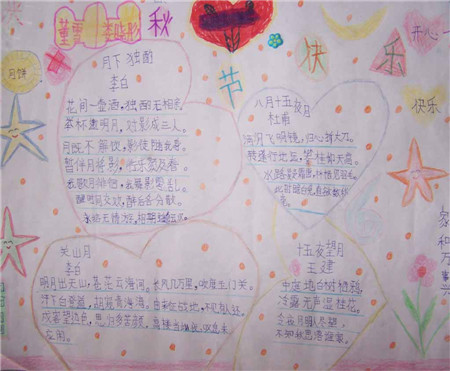 秋
节
快
乐
开心一
快乐
月饼
月下独酌
李白
花间一壶酒,独酌无相亲
举杯邀明月,对影成三人。
月既不解饮,影徒随我身。
暂伴月将影,行乐须及春。
我歌月徘徊,我舞影零乱。
醒时同交欢,醉后各分散。
永结无情游,相期邈云汉。
八月十五夜月
杜甫
满月飞明镜,归心折大刀。
转蓬行地远,攀桂仰天高。
水路疑霜雪,林栖见羽毛。
此时瞻白兔,直欲数秋
毫。
关山月
李白
明月出天山,苍茫云海间。长风几万里,吹度玉门关。
汉下白登道,胡窥青海湾。由来征战地,不见有人还。
戍客望边色,思归多苦颜。高楼当此夜,叹息未
应闲。
十五夜望月
王建
中庭地白树栖鸦,
冷露无声湿桂花。
今夜月明人尽望,
不知秋思落谁家。
家和万事兴